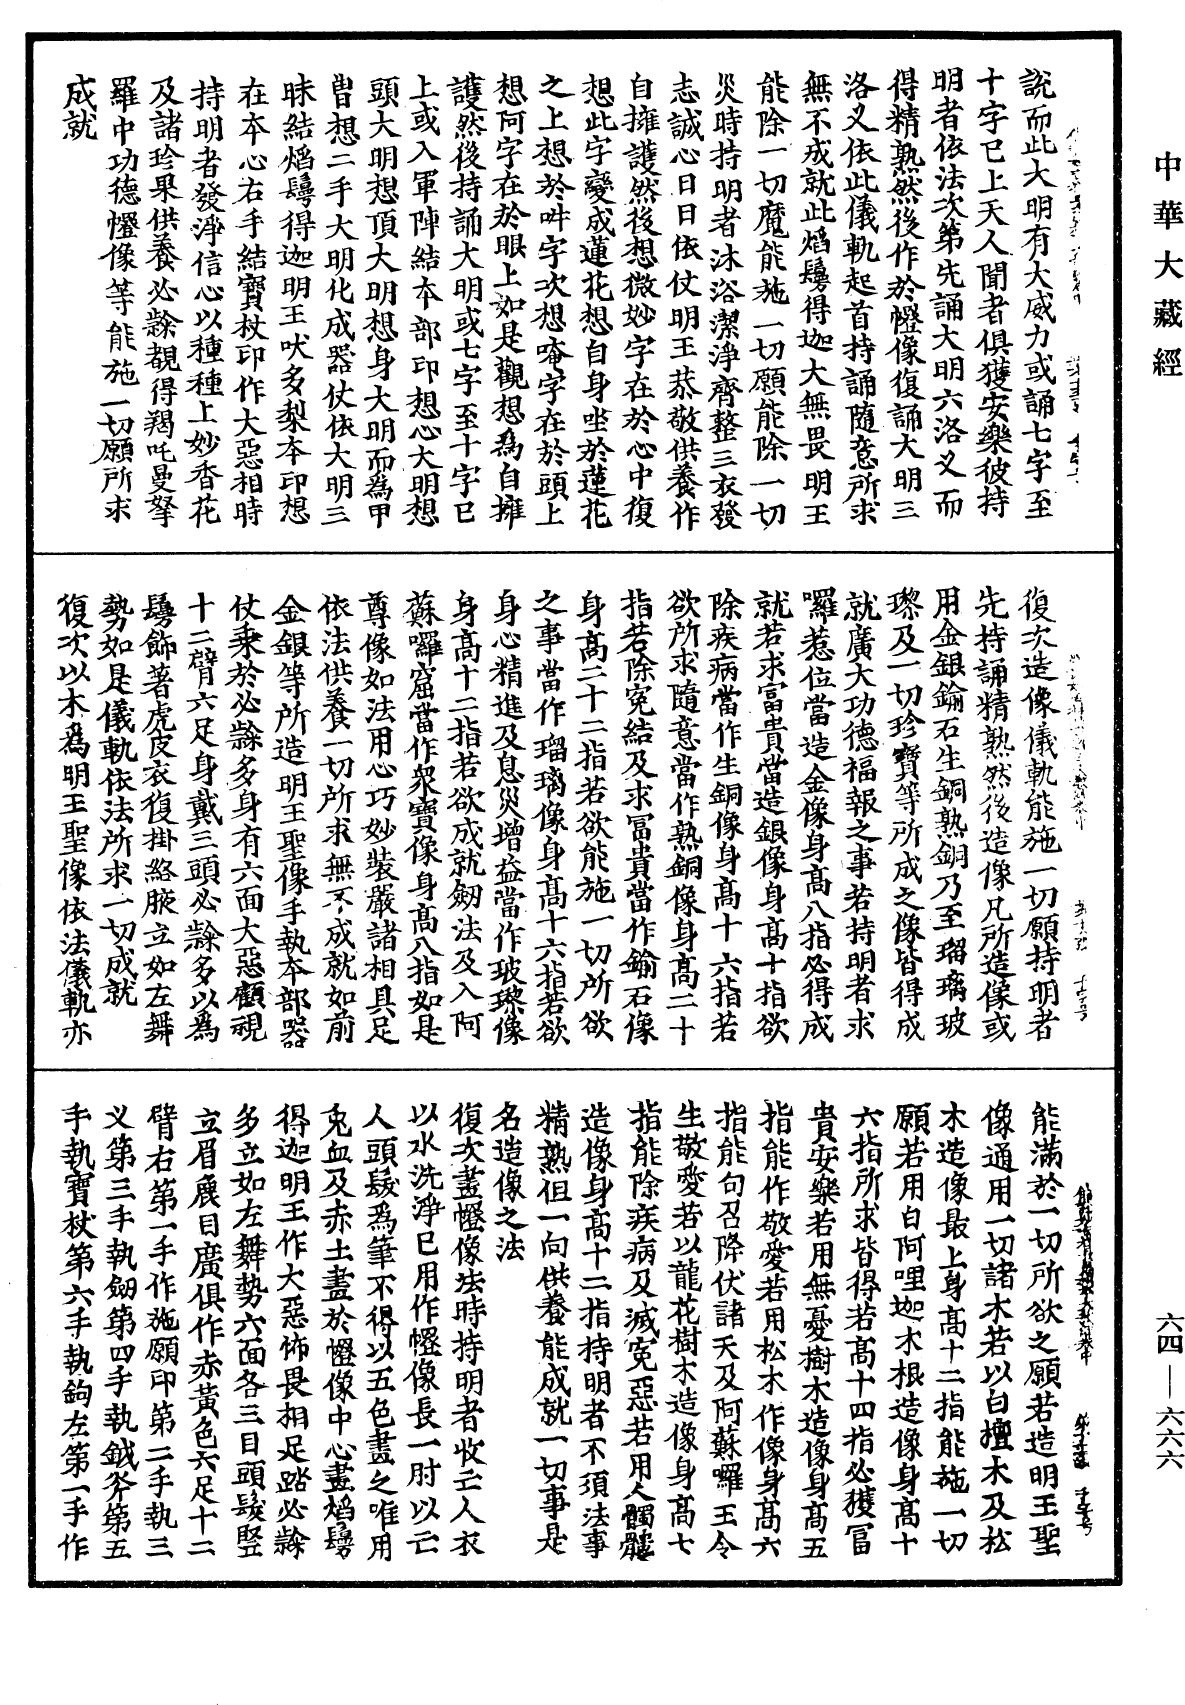 中華大藏經
說而此大明有大威力或誦七字至
十字已上天人聞者俱獲安樂彼持
明者依法次第先誦大明六洛叉而
得精熟然後作於㡧像復誦大明三
洛叉依此儀軌起首持誦隨意所求
無不成就此焰鬘得迦大無畏明王
能除一切魔能施一切願能除一切
災時持明者沐浴潔淨齊整三衣發
志誠心日日依仗明王恭敬供養作
自擁護然後想微妙字在於心中復
想此字變成蓮花想自身坐於蓮花
之上想於吽字次想唵字在於頭上
想阿字在於眼上如是觀想為自擁
護然後持誦大明或七字至十字已
上或入軍陣結本部印想心大明想
頭大明想頂大明想身大明而為甲
胄想二手大明化成器仗依大明三
昧結焰鬘得迦明王吠多梨本印想
在本心右手結寶杖印作大惡相時
持明者發淨信心以種種上妙香花
及諸珍果供養必隸覩得羯吒曼拏
羅中功德㡧像等能施一切願所求
成就
復次造像儀軌能施一切願持明者
先持誦精熟然後造像凡所造像或
用金銀鍮石生銅熟銅乃至瑠璃玻
瓈及一切珍寶等所成之像皆得成
就廣大功德福報之事若持明者求
囉惹位當造金像身高八指必得成
就若求富貴當造銀像身高十指欲
除疾病當作生銅像身高十六指若
欲所求隨意當作熟銅像身高二十
指若除冤結及求富貴當作鍮石像
身高二十二指若欲能施一切所欲
之事當作瑠璃像身高十六指若欲
身心精進及息災增益當作玻瓈像
身高十二指若欲成就劒法及入阿
蘇囉窟當作衆寶像身高八指如是
尊像如法用心巧妙裝嚴諸相具足
依法供養一切所求無不成就如前
金銀等所造明王聖像手執本部器
仗乘於必隸多身有六面大惡顧視
十二臂六足身戴三頭必隸多以為
鬘飾著虎皮衣復掛絡腋立如左舞
勢如是儀軌依法所求一切成就
復次以木為明王聖像依法儀軌亦
能滿於一切所欲之願若造明王聖
像通用一切諸木若以白檀木及松
木造像最上身高十二指能施一切
願若用白阿哩迦木根造像身高十
六指所求皆得若高十四指必獲冨
貴安樂若用無憂樹木造像身高五
指能作敬愛若用松木作像身高六
指能句召降伏諸天及阿蘇囉王令
生敬愛若以龍花樹木造像身高七
指能除疾病及滅冤惡若用人髑髏
造像身高十二指持明者不須法事
精熟但一向供養能成就一切事是
名造像之法
復次畫㡧像法時持明者收亡人衣
以水洗淨已用作㡧像長一肘以亡
人頭髮為筆不得以五色畫之唯用
兔血及赤土畫於㡧像中心畫焰鬘
得迦明王作大惡怖畏相足踏必隸
多立如左舞勢六面各三目頭髮竪
立眉麁目廣俱作赤黃色六足十二
臂右第一手作施願印第二手執三
叉第三手執劒第四手執鉞斧第五
手執寶杖第六手執鉤左第一手作
六四—六六六